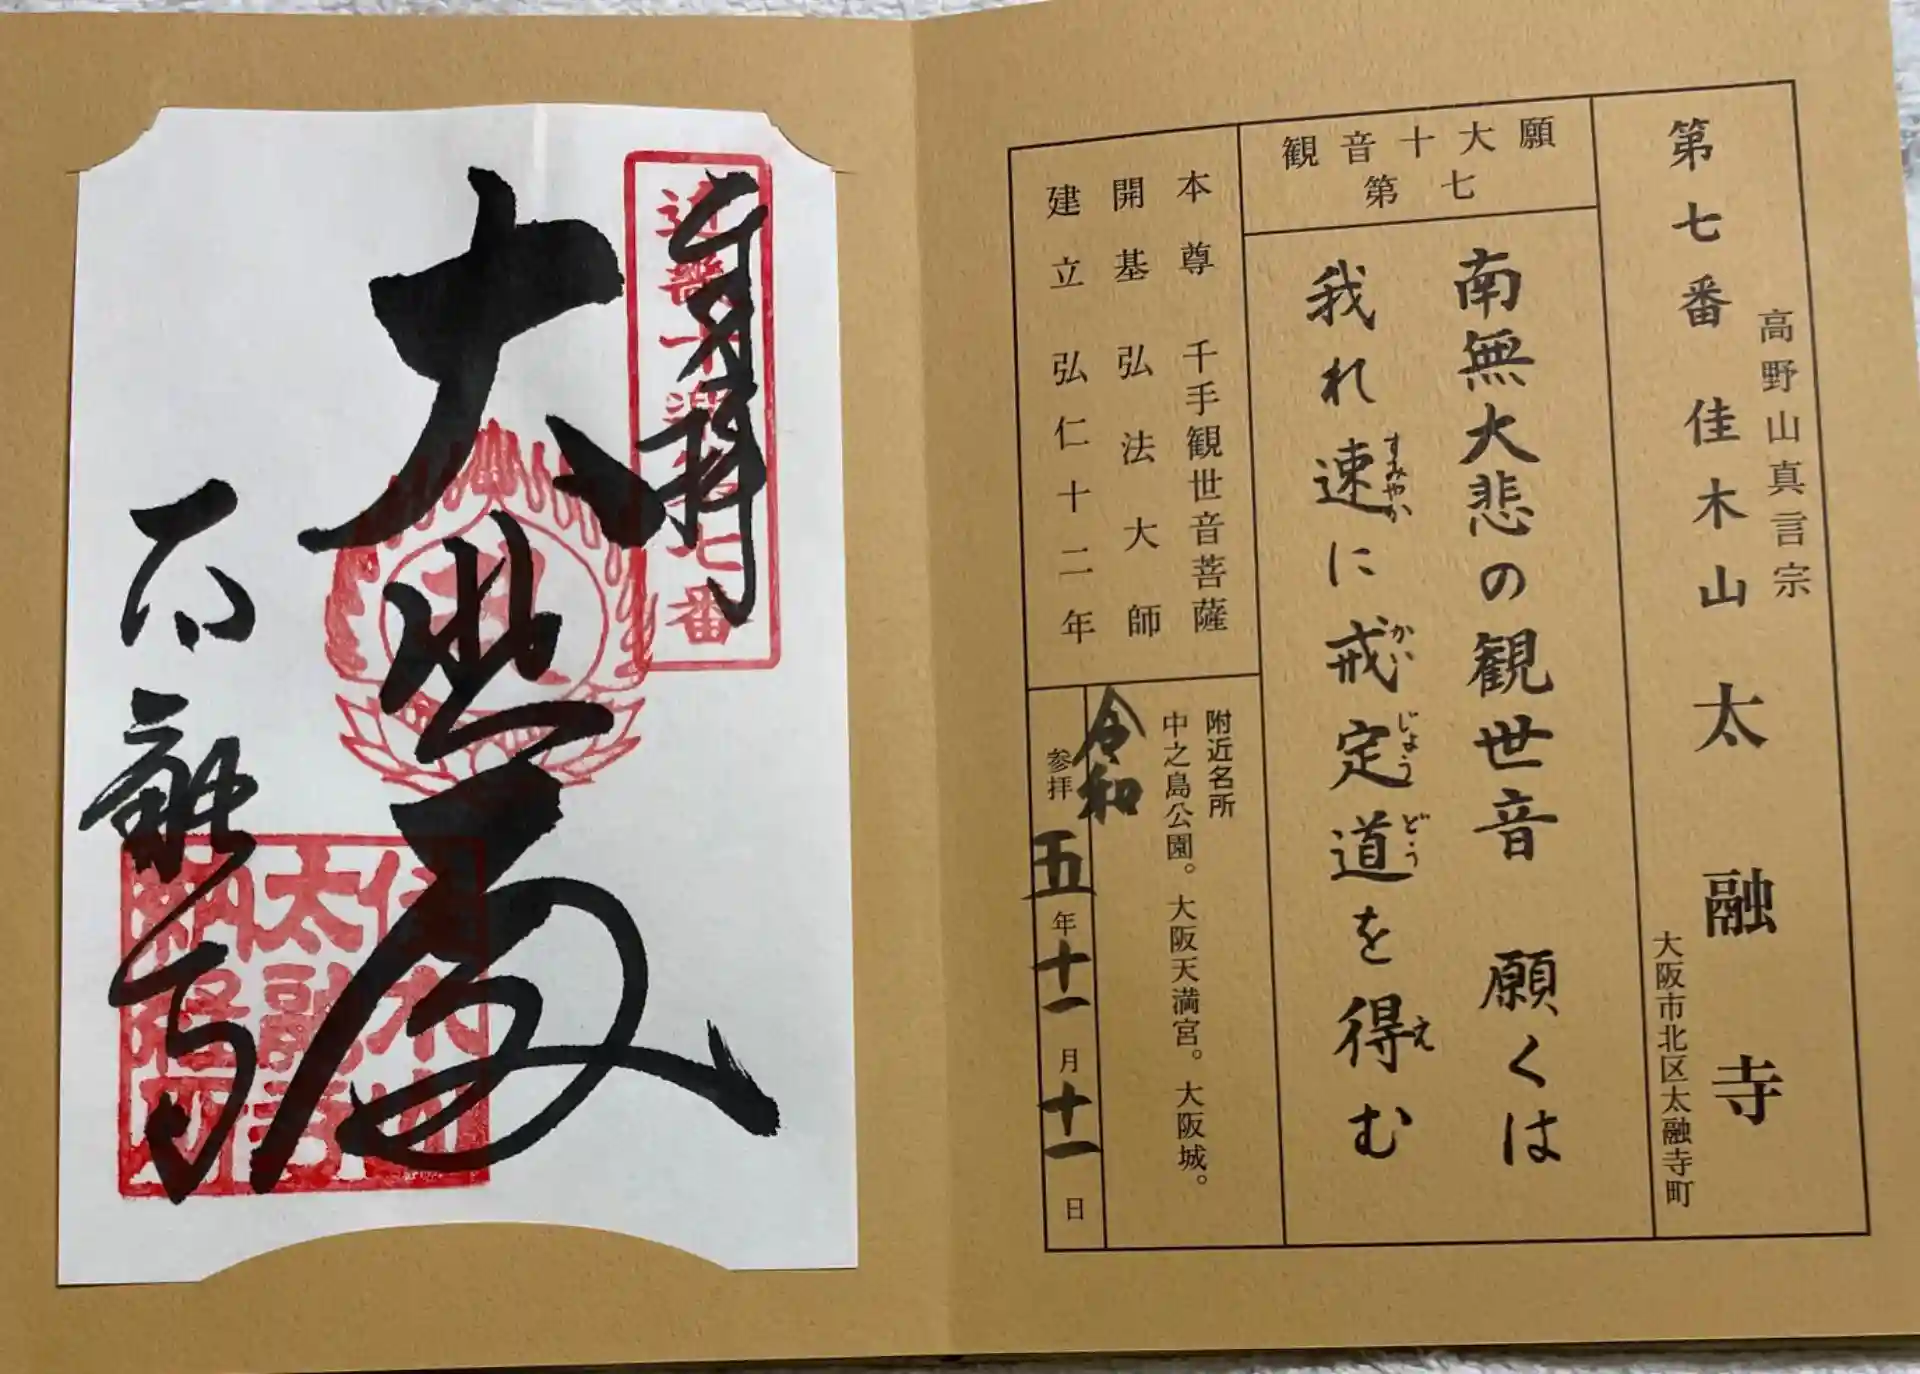 第七番 佳木山 太融寺
高野山真言宗
大阪市北区太融寺町
観音十大願
第七
南無大悲の観世音 願くは
我れ速に戒定道を得む
すみやか
かい
じょう
どう
え
本尊 千手観世音菩薩
開基 弘法大師
建立 弘仁十二年
附近名所
中之島公園。大阪天満宮。大阪城。
令和
参拝 五年十一月十一日
奉拝
大悲殿
太融寺
近畿十楽第七番
佳木山
太融寺
納経所